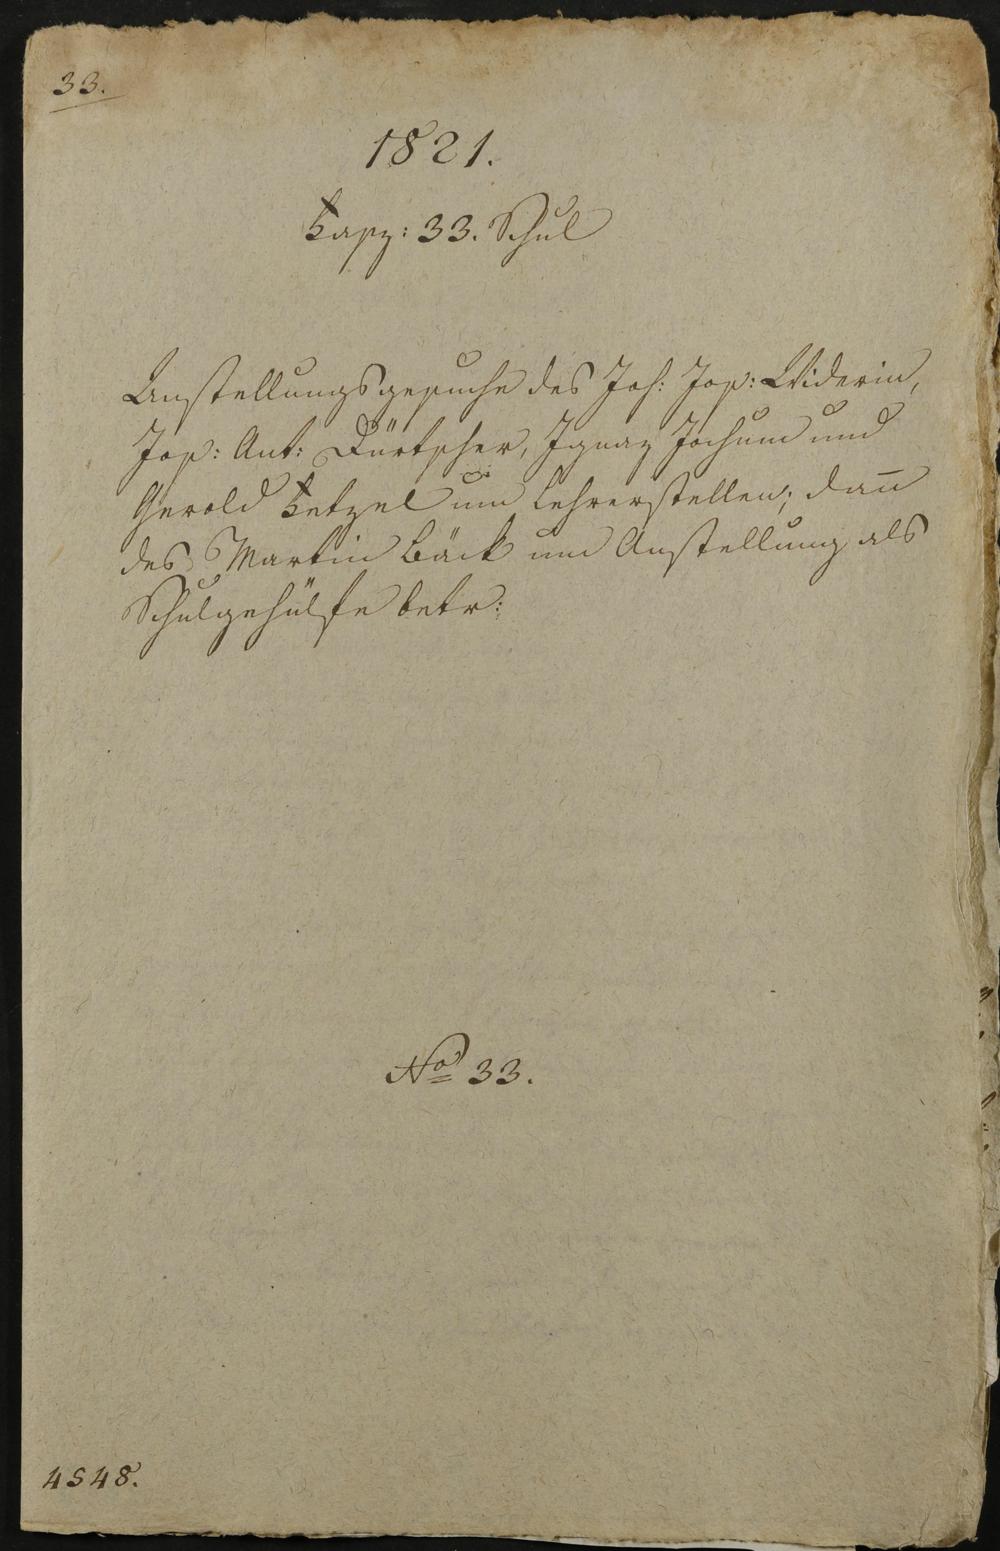 33.
1821.
Fasz: 33. Schul
Anstellungsgesuche des Joh: Jos: Widerin,
Jos: Ant: Dürtscher, Ignaz Jochum und
Gerold Fetzel um Lehrerstellen; dan̄
des Martin Bäck um Anstellung als
Schulgehülfe betr:
No 33.
4548.